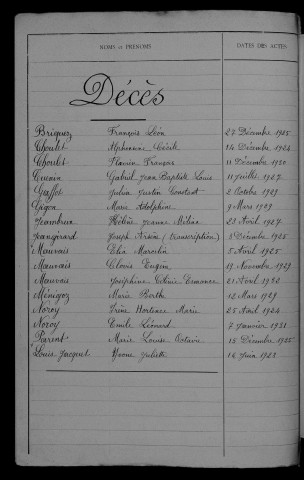 NOMS et PRÉNOMS DATES DES ACTES
Décès
Briquez François Léon 27 Décembre 1925
Choulet Alphonsine Cécile 14 Décembre 1924
Choulet Flavien François 11 Décembre 1930
Cuenin Gabriel Jean Baptiste Louis 11 Juillet 1927
Gaffot Julia Justin Constant 2 Octobre 1929
Gigon Marie Adolphine 9 Mars 1929
Jeambrun Hélène Jeanne 23 Avril 1927
Jeangirard Joseph Arsène (transcription) Décembre 1925
Mauvais Elia Marcelin 5 Avril 1925
Mauvais Clovis Eugène 19 Novembre 1929
Mauvais Joséphine Célinie Esmance 21 Avril 1930
Ménigoz Marie Berthe 12 Mars 1929
Noroy Irène Hortense Marie 25 Avril 1924
Noroy Emile Léonard 7 Janvier 1931
Parent Marie Louise Octavie 15 Décembre 1925
Louis Jacquet Yvonne Juliette 14 Juin 1928